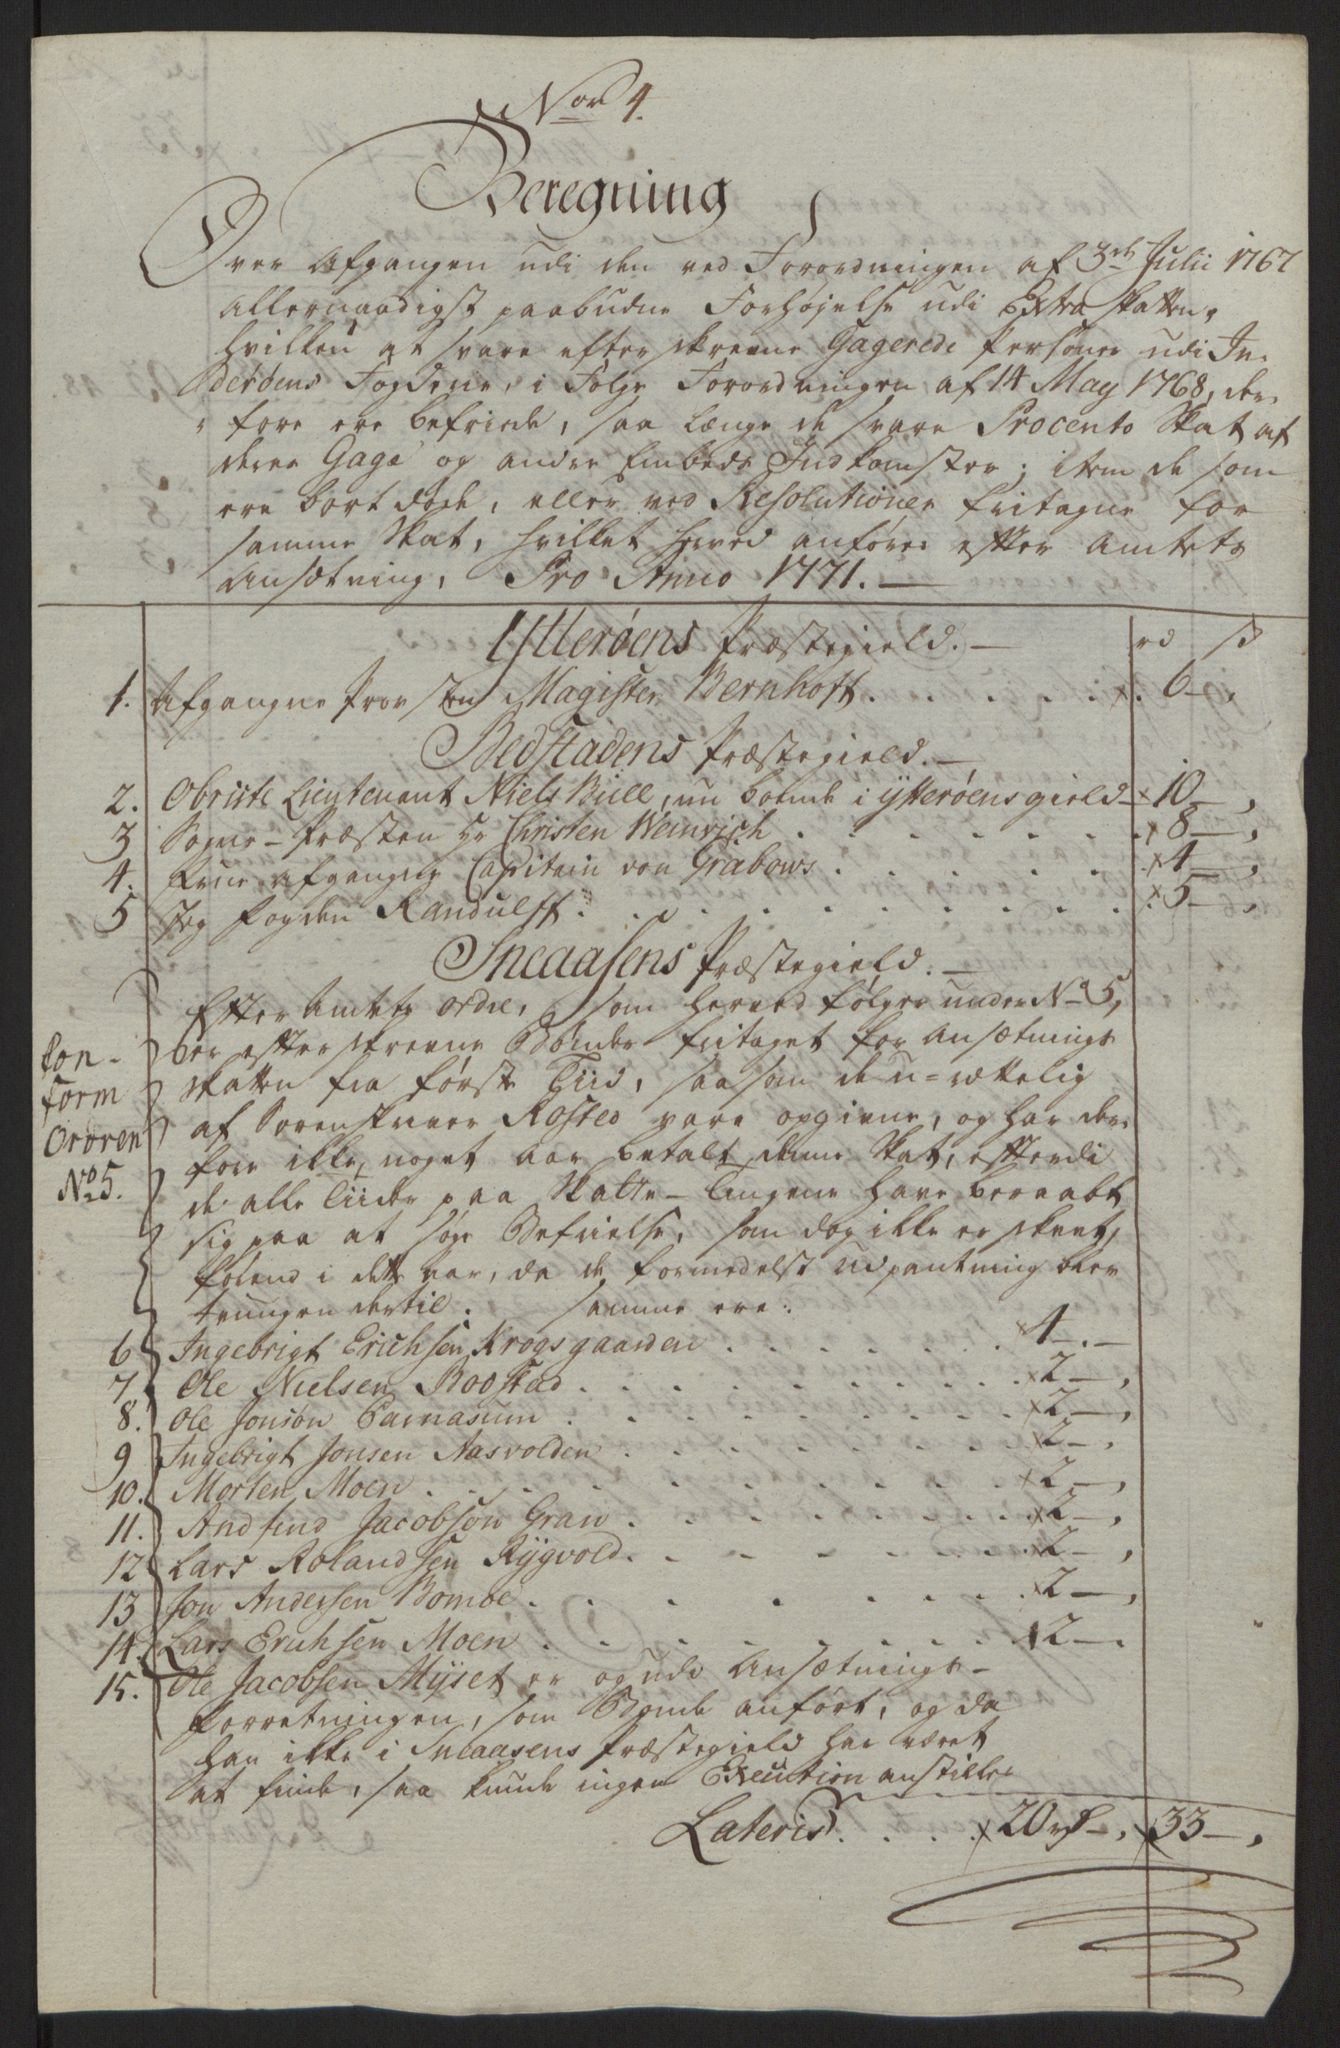 Nor 4.
Beregning
Over Afgangen udi den ved Forordningen af 3die Julii 1767
allernaadigst paabudne Forhøjelse udi Extra Skatten,
hvilken at svare efterskrevne Gagerede Persohner udi In-
derøens Fogderie, i Følge Forordningen af 14 May 1768, der-
fore ere befriede, saa længe de svare Procento Skat af
deres Gage og andre Embeds Indkomster; item de som
ere bortdøde, eller ved Resolutioner fritagne for
samme Skat, hvilket herved anføres efter Amtets
Ansætning, Pro Anno 1771.
Ytterøens Præstegield. rd ß
1. Afgangne Provsten Magister Bernhoft . . . . . 6 —
Bedstadens Præstegield.
2. Obriste Lieutenant Niels Bull, nu boende i Ytterøens gield 10 —
3 Sogne-Præsten Hr Christen Weinrich . . . . . 8 —
4. Frue afgangne Capitain von Grabows . . . . . 4 —
5 Jeg Fogden Randulff . . . . . 5 —
Sneaasens Præstegield.
Efter Amtets Ordre, som herved følger under No 5,
bør efterskrevne Bønder fritaget for Ansætnings
Skatten fra første Tiid, saasom de u-rættelig
af Sorenskriver Rosted vare opgivne, og har der-
fore ikke noget aar betalt denne Skat, efterdi
de alle Tiider paa Skatte-Tingene have beraabt
sig paa at søge Befrielse, som dog ikke er skeet,
førend i dette aar, da de formedelst Udpantning blev
tvungen dertil. Samme ere:
Con-
form
Ordren
No 5.
6 Ingebrigt Erichsen Krogsgaarden . . . . . 4 —
7. Ole Nielsen Bodstad . . . . . 2 —
8. Ole Jonsøn Carnasum . . . . . 2 —
9 Ingebrigt Jonsen Aasvolden . . . . . 2 —
10. Morten Moen . . . . . 2 —
11. Andfind Jacobsøn Gran . . . . . 2 —
12 Lars Rolandsen Rygvold . . . . . 2 —
13 Jon Andersen Bomoe . . . . . 2 —
14. Lars Erichsen Moen . . . . . 2 —
15. Ole Jacobsen Myset er og udi Ansætnings-
Forretningen, som Bonde anført, og da
han ikke i Sneaasens Præstegield har været
at finde, saa kunde ingen Execution anstilles
Lateris . . . . 20 rd —, 33 —,